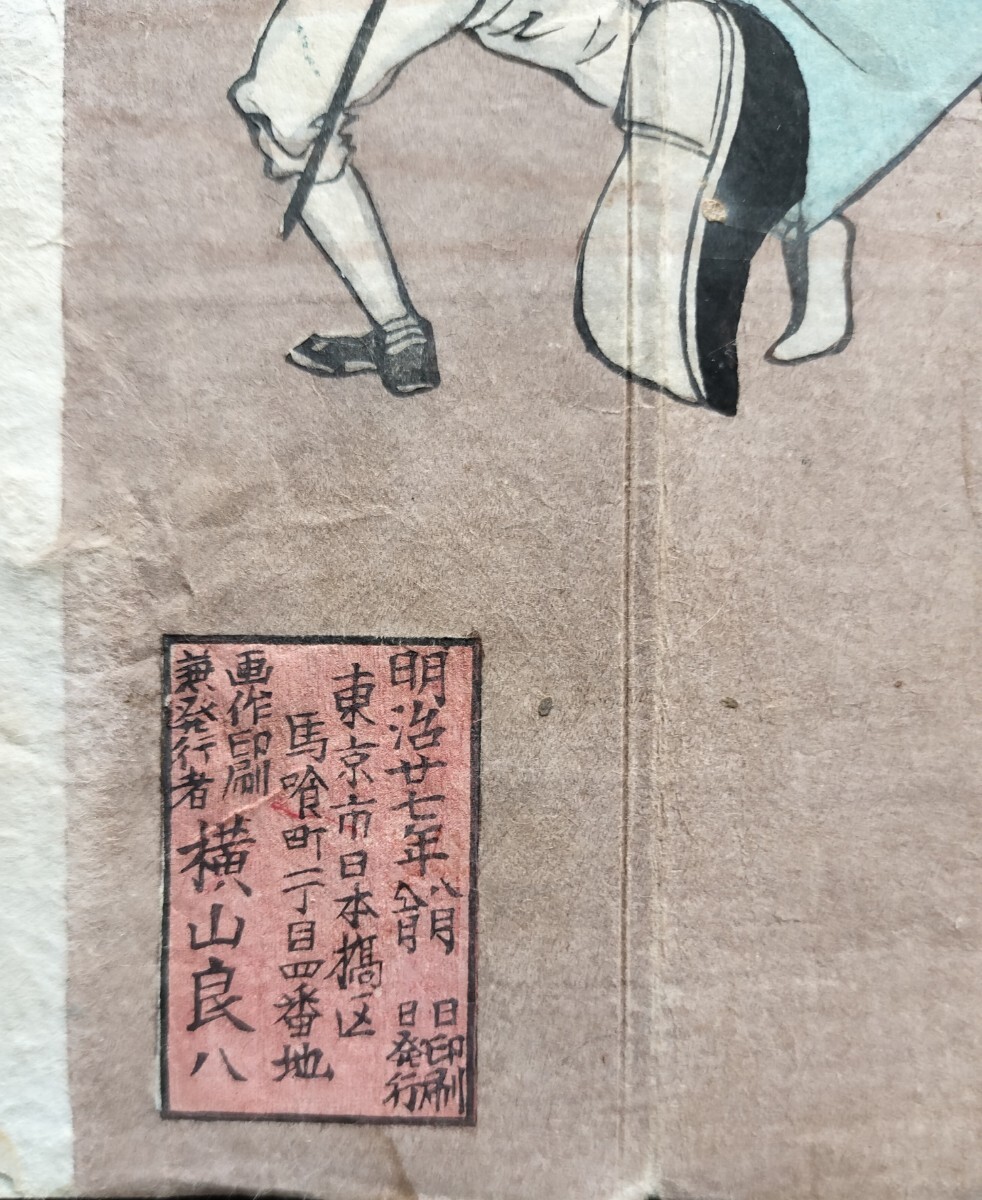 明治廿七年八月　日印刷
仝月　日発行
東京市日本橋区
馬喰町二丁目四番地
画作印刷
兼発行者
横山良八